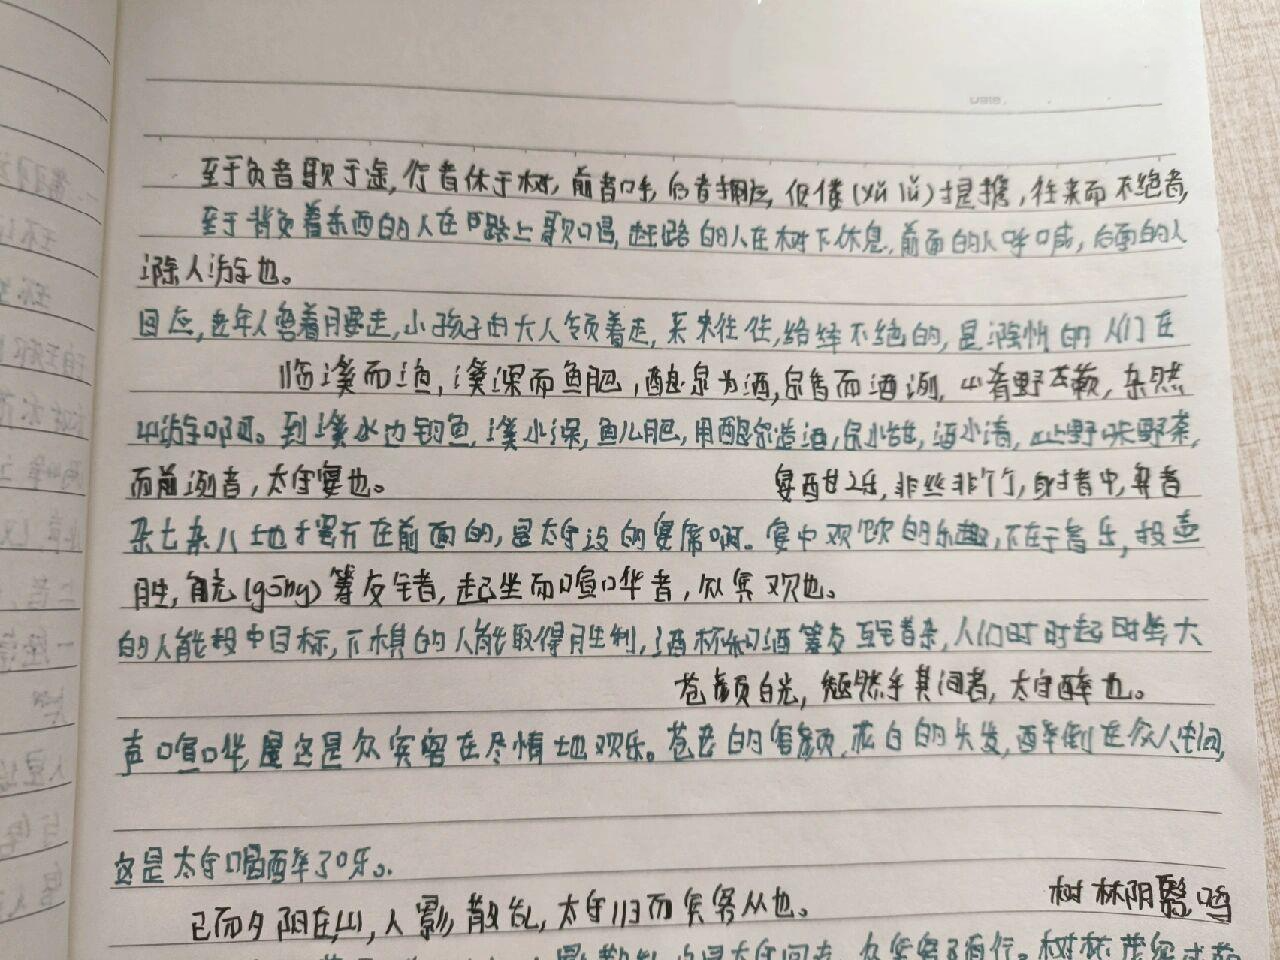 Date.
至于负者歌于途,行者休于树,前者呼,后者拥应,伛偻(yǔ lǚ)提携,往来而不绝者,
至于背负着东西的人在路上歌唱,赶路的人在树下休息,前面的人呼喊,后面的人
滁人游也。
回应,老年人弯着腰走,小孩子由大人领着走,来来往往,络绎不绝的,是滁州的人们在
临溪而渔,溪深而鱼肥,酿泉为酒,泉香而酒洌,山肴野蔌,杂然
山游啊。到溪水边钓鱼,溪水深,鱼儿肥,用酿泉造酒,泉水甜,酒水清,野味野菜,
而前洌者,太守宴也。
宴酣之乐,非丝非竹,射者中,弈者
杂七杂八地才摆开在前面的,是太守设的宴席啊。宴中欢饮的乐趣,不在于音乐,投壶
胜,觥(gōng)筹交错者,起坐而喧哗者,众宾欢也。
的人能投中目标,下棋的人能取得胜利,酒杯和酒筹交互错杂,人们时时起时坐大
苍颜白发,颓然乎其间者,太守醉也。
声喧哗,是这是众宾客在尽情地欢乐。苍老的容颜,花白的头发,醉倒在众人中间,
这是太守喝醉了呀。
已而夕阳在山,人影散乱,太守归而宾客从也。
树林阴翳,鸣
影散乱,